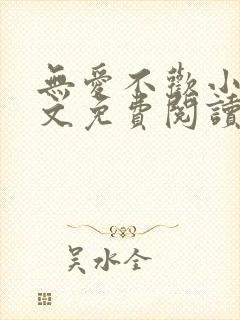 無愛不歡小
文免費閱讀
吳水全